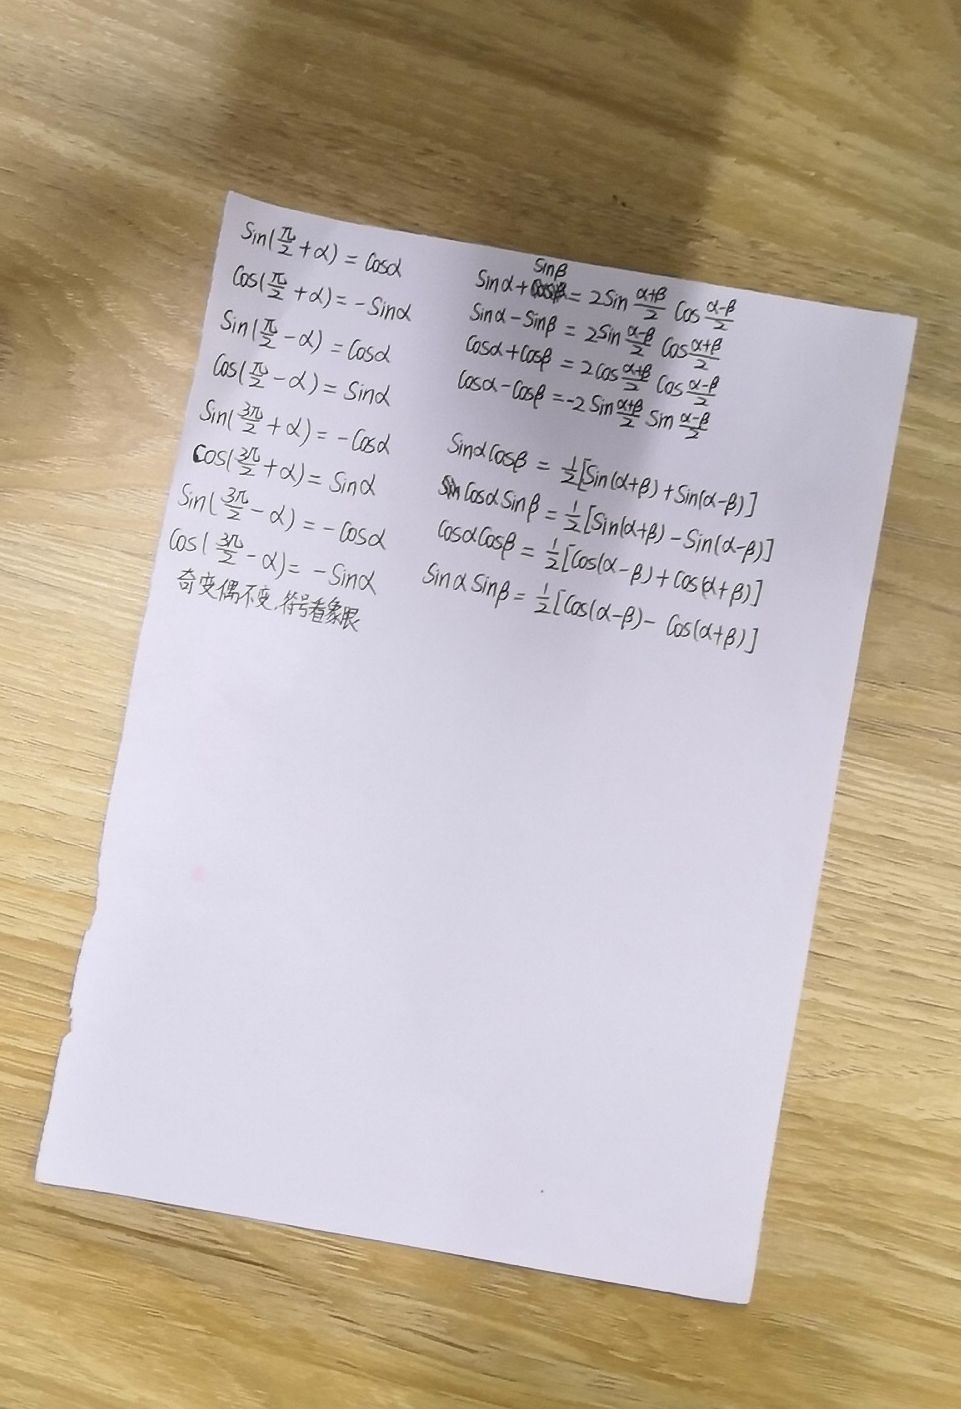 Sin(π/2 + α) = Cosα
Cos(π/2 + α) = - Sinα
Sin(π/2 - α) = Cosα
Cos(π/2 - α) = Sinα
Sin(3π/2 + α) = - Cosα
Cos(3π/2 + α) = Sinα
Sin(3π/2 - α) = - Cosα
Cos(3π/2 - α) = - Sinα
奇变偶不变,符号看象限
Sinα + Sinβ = 2Sin (α+β)/2 Cos (α-β)/2
Sinα - Sinβ = 2Sin (α-β)/2 Cos (α+β)/2
Cosα + Cosβ = 2Cos (α+β)/2 Cos (α-β)/2
Cosα - Cosβ = -2 Sin (α+β)/2 Sin (α-β)/2
Sinα Cosβ = 1/2[Sin(α+β) + Sin(α-β)]
Cosα Sinβ = 1/2[Sin(α+β) - Sin(α-β)]
Cosα Cosβ = 1/2[Cos(α-β) + Cos(α+β)]
Sinα Sinβ = 1/2[Cos(α-β) - Cos(α+β)]